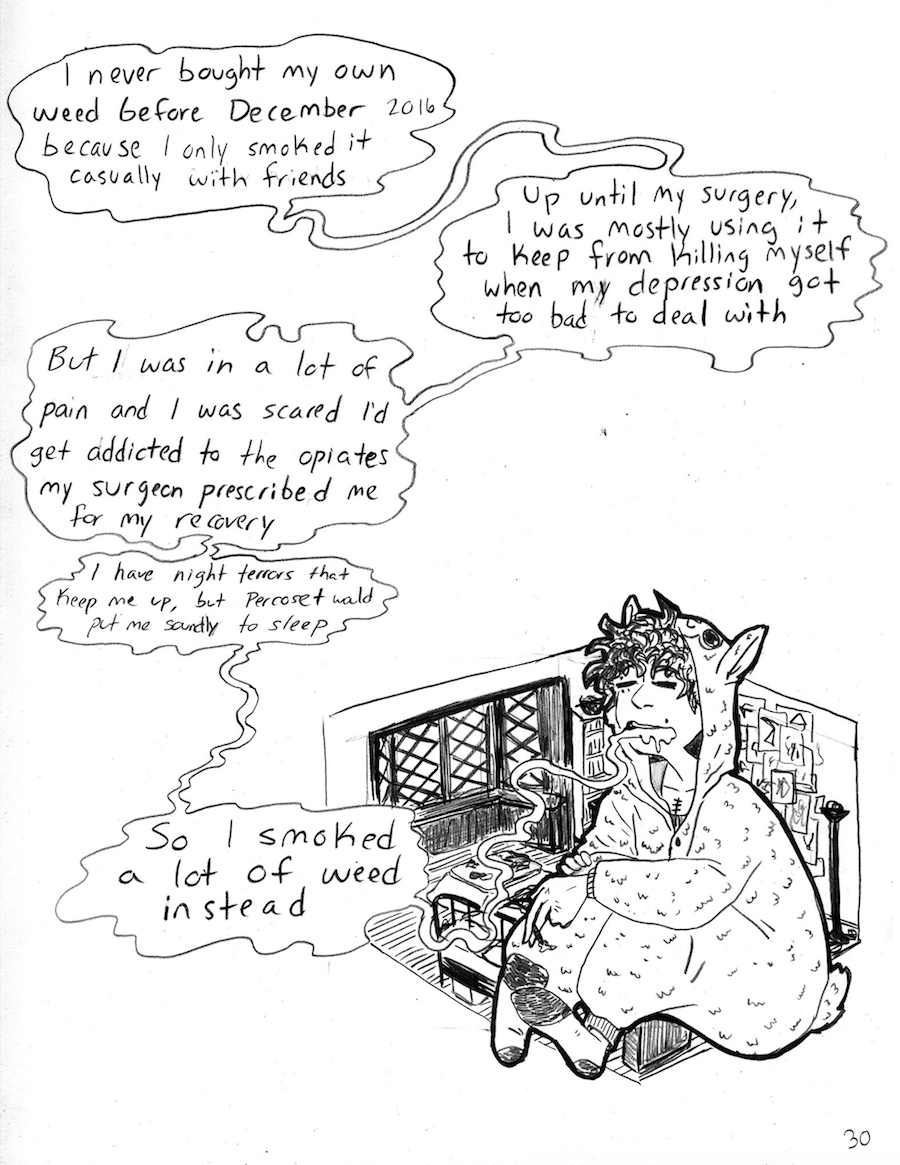 I never bought my own
weed before December 2016
because I only smoked it
casually with friends
Up until my surgery,
I was mostly using it
to keep from killing myself
when my depression got
too bad to deal with
But I was in a lot of
pain and I was scared I'd
get addicted to the opiates
my surgeon prescribed me
for my recovery
I have night terrors that
keep me up, but Percoset would
put me soundly to sleep
So I smoked
a lot of weed
instead
30